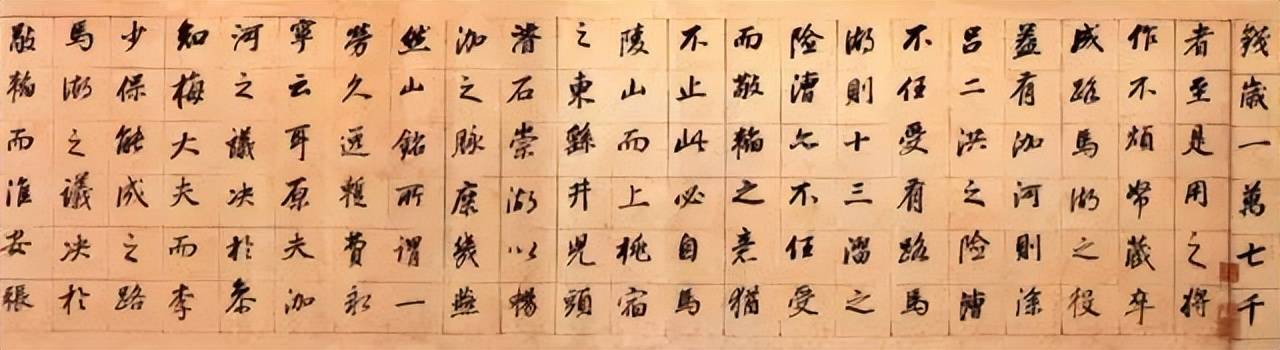 錢歲一萬七千
者至是用之將
作不煩帑藏卒
成路馬湖之役
益有泇河則徐
呂二洪之險漕
不任受有路馬
湖則十三溜之
險漕亦不任受
而敬韜之意猶
不止此必自馬
陵山而上桃宿
之東繇井兒頭
濬石崇湖以楊
泇之脉庶幾燕
然山銘所謂一
勞久逸暫費永
寧云耳原夫泇
河之議決於叅
知梅大夫而李
少保能成之路
馬湖之議決於
敬韜而淮安張